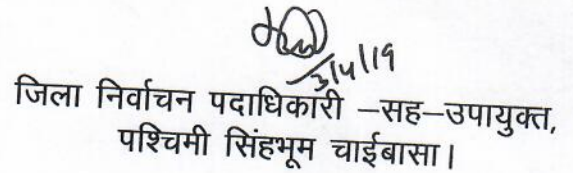 3/4/19
जिला निर्वाचन पदाधिकारी –सह–उपायुक्त,
पश्चिमी सिंहभूम चाईबासा।